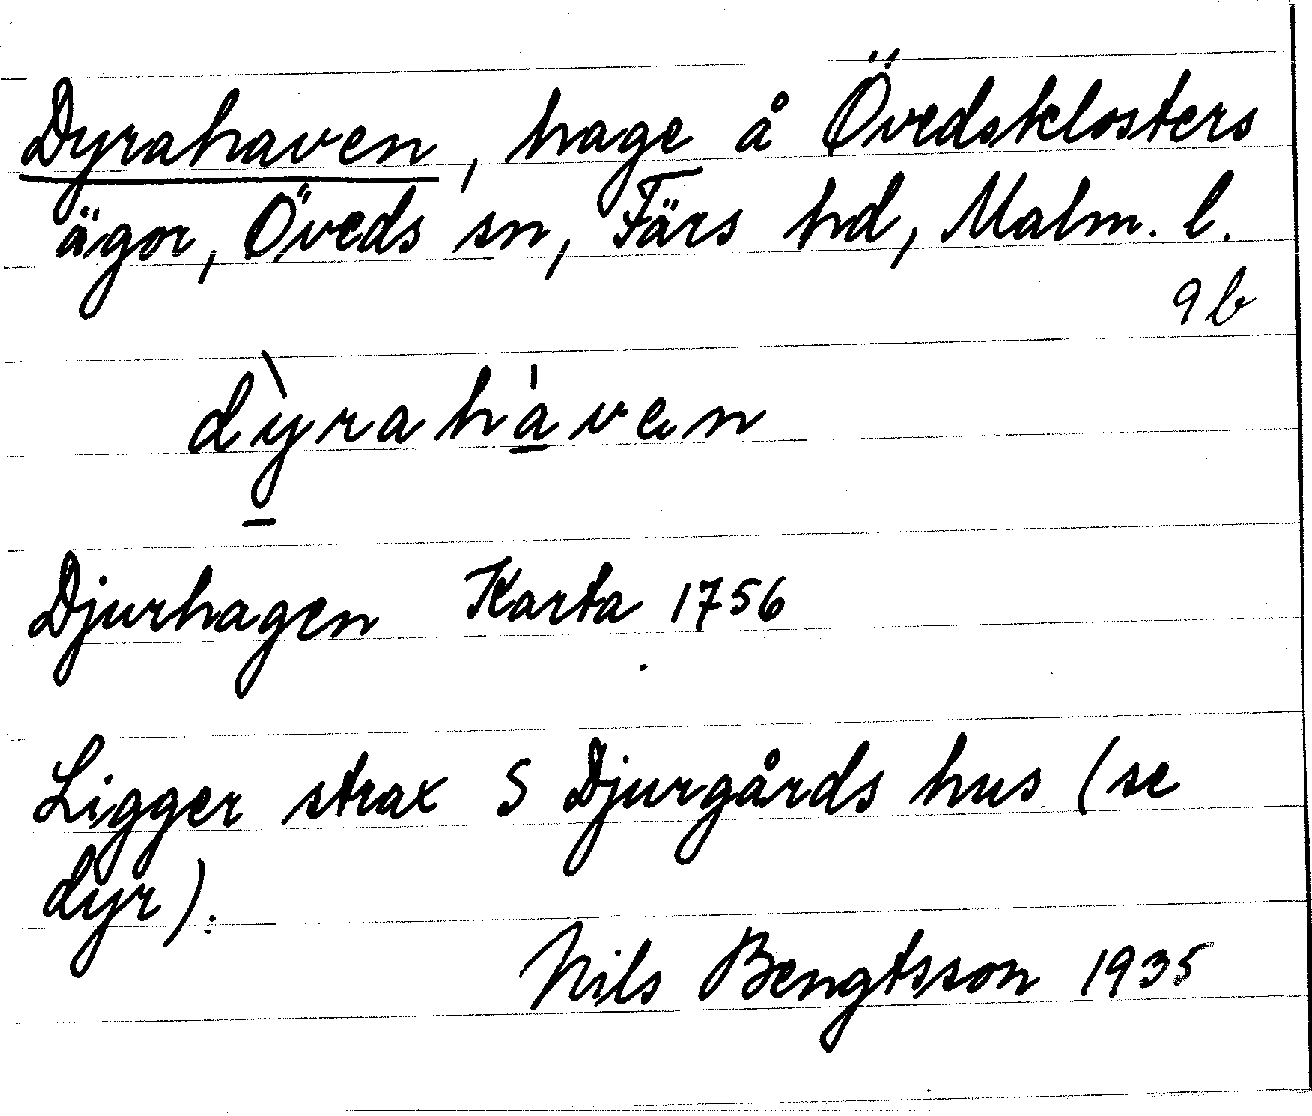 Dyrahaven, hage å Övedsklosters
ägor, Öveds sn, Färs hd, Malm. l.
9b
dỳ̱raha̱̍ven
Djurhagen Karta 1756
Ligger strax S Djurgårds hus (se
dyr).
Nils Bengtsson 1935